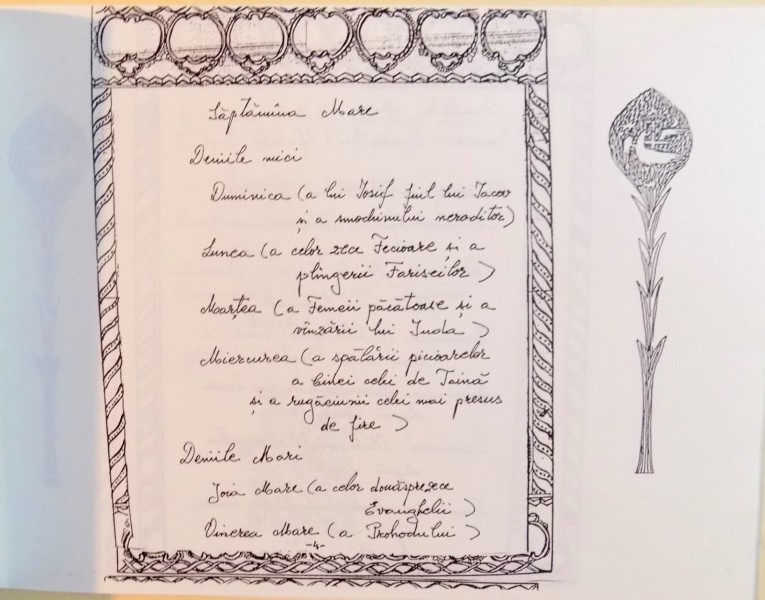 Săptămîna Mare
Deniile mici
Duminica (a lui Iosif fiul lui Iacov
și a smochinului neroditor)
Lunea (a celor zece Fecioare și a
plîngerii Fariseilor)
Marțea (a Femeii păcătoase și a
vînzării lui Iuda)
Miercurea (a spălării picioarelor
a Cinei celei de Taină
și a rugăciunii celei mai presus
de fire)
Deniile Mari
Joia Mare (a celor douăsprezece
Evanghelii)
Vinerea Mare (a Prohodului)
-4-